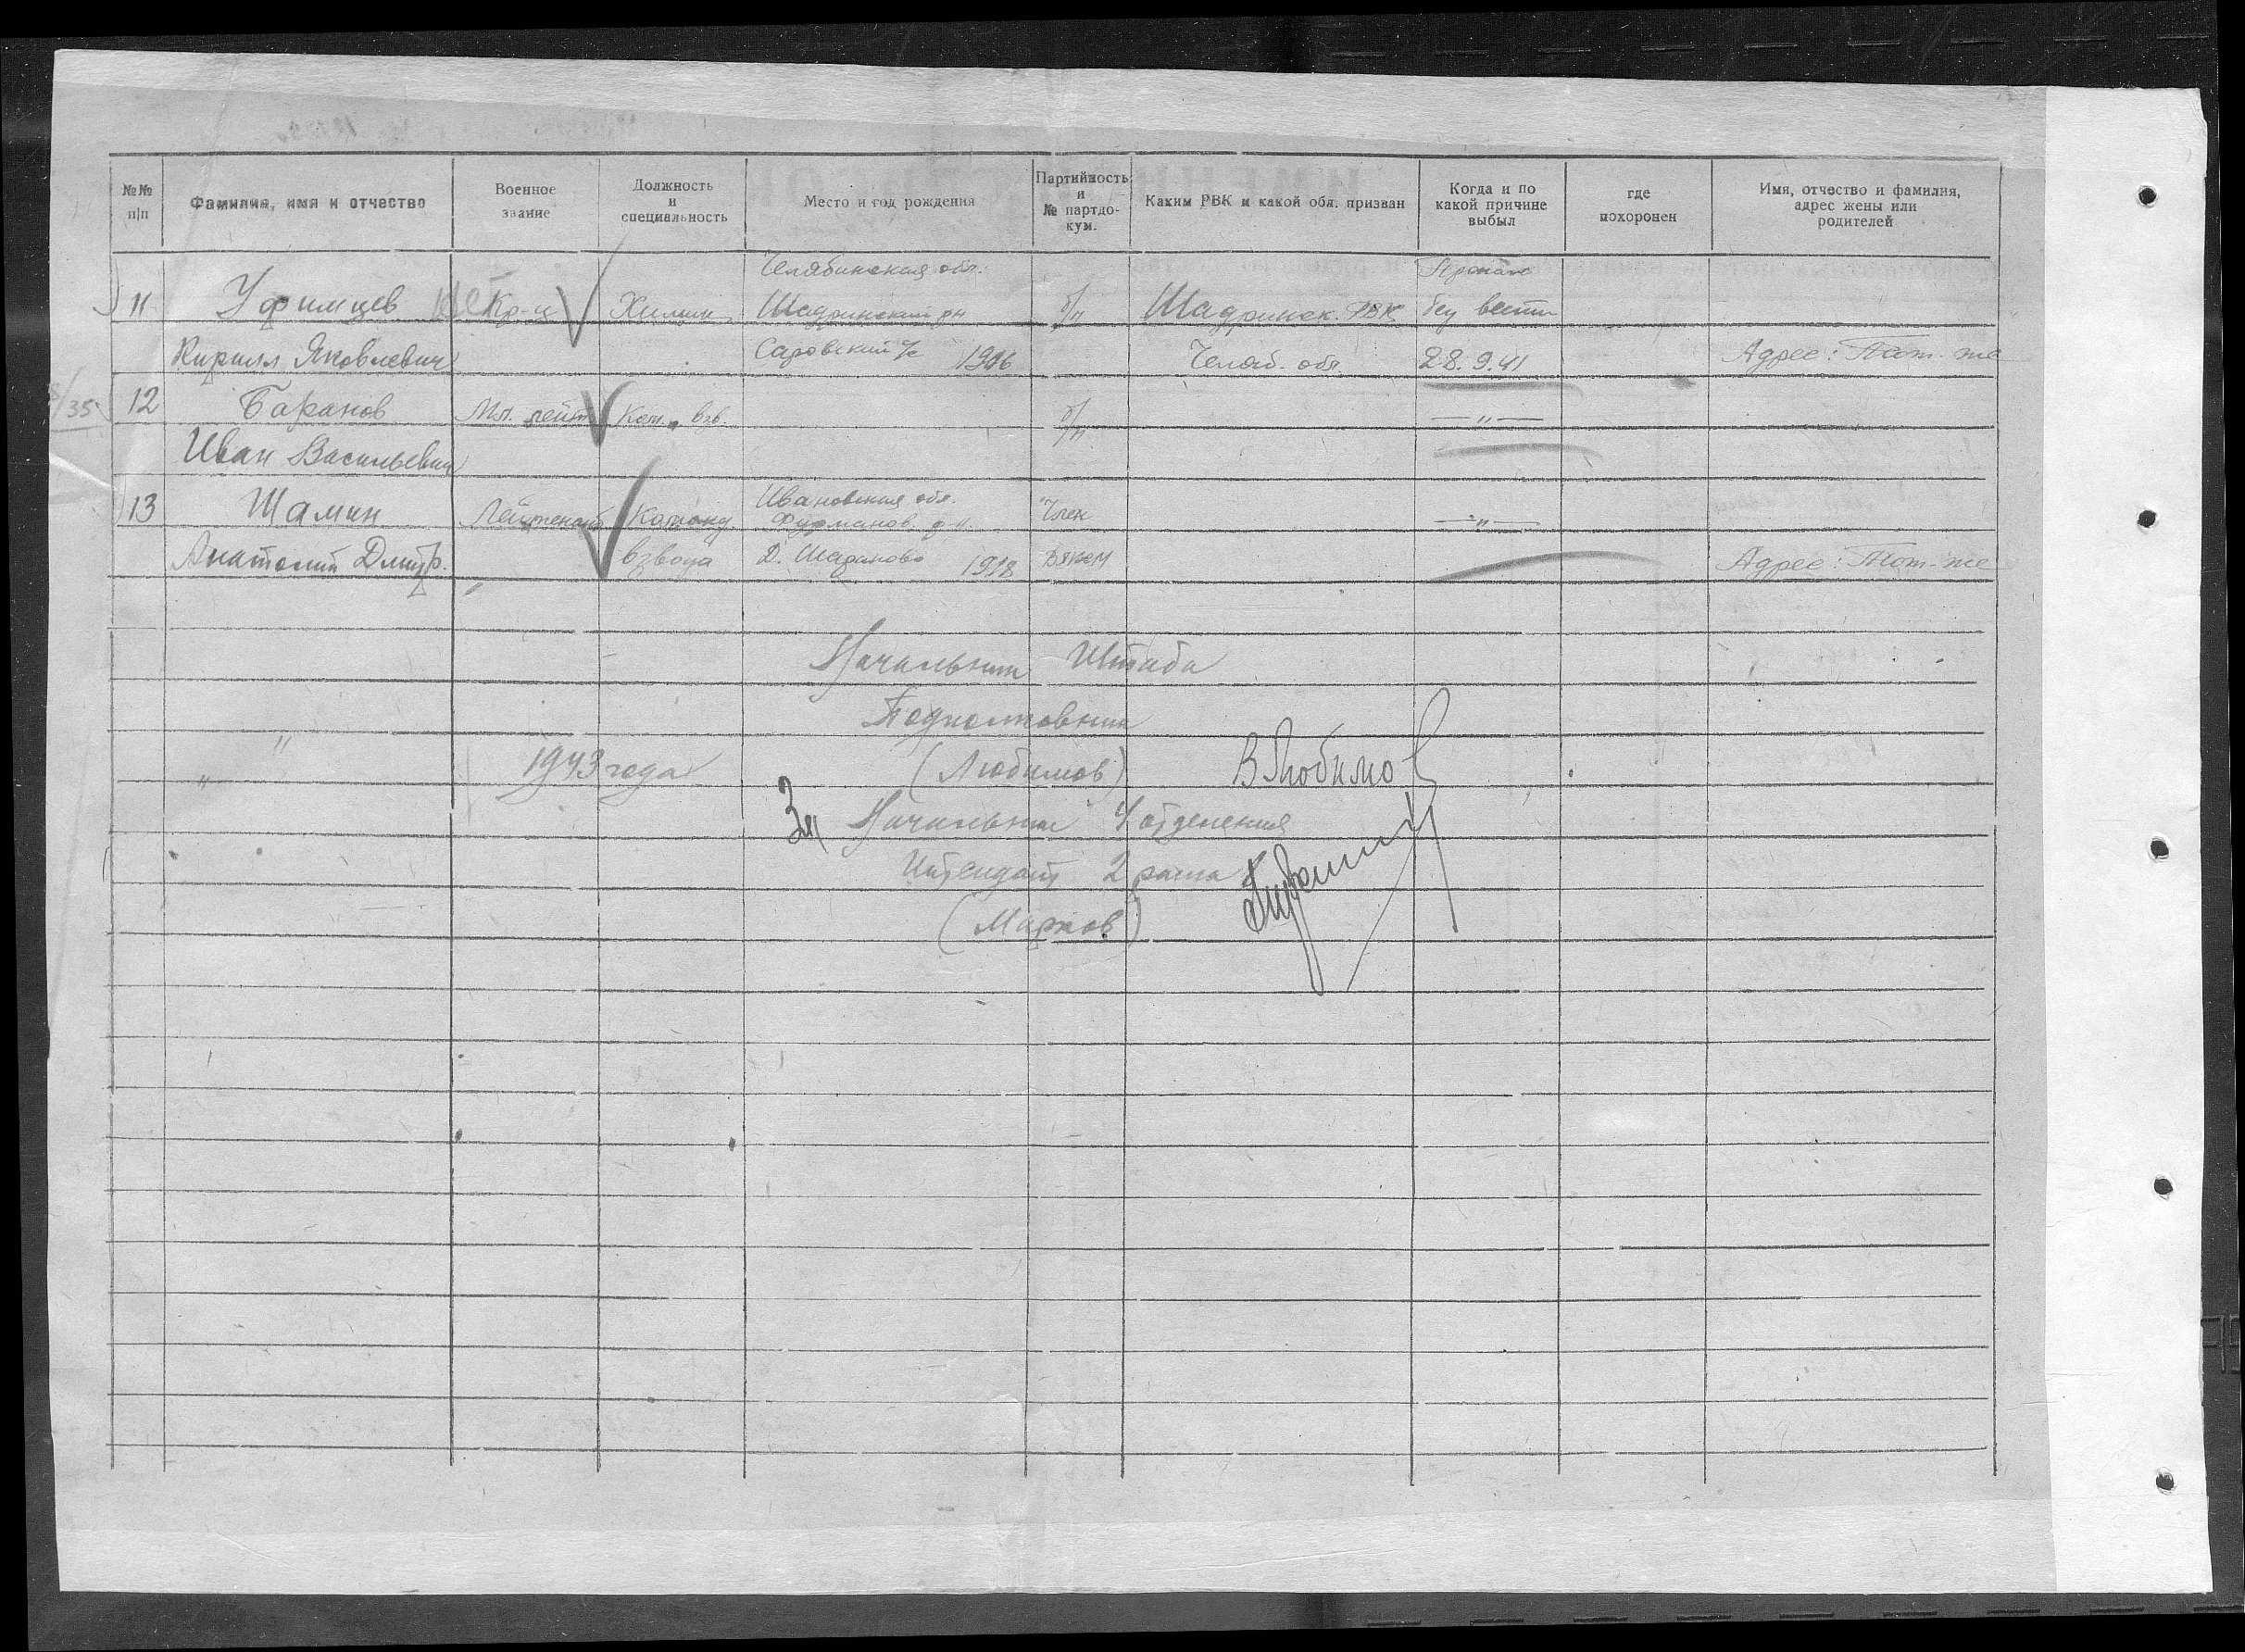 №№ п/п
Фамилия, имя и отчество
Военное звание
Должность и специальность
Место и год рождения
Партийность и № партдокум.
Каким РВК и какой обл. призван
Когда и по какой причине выбыл
где похоронен
Имя, отчество и фамилия, адрес жены или родителей
Челябинская обл. Пропал
11 Уфимцев Кр-ц Химик Шадринский рн б/п Шадринск. РВК без вести
Кирилл Яковлевич Саровский с/с 1906 Челяб. обл. 28.9.41 Адрес: Тот-же
/35
12 Баранов Мл. лейт Ком. взв. б/п — " —
Иван Васильевич
Ивановская обл.
13 Шамин Лейтенант Команд. Фурманов. р-н. Член — " —
Анатолий Дмитр. взвода Д. Шараково 1918 ВЛКСМ Адрес: Тот-же
Начальник Штаба
Подполковник
" " 1943 года (Любимов) ВЛюбимов
За Начальник 4 отделения
Интендант 2 ранга
(Марков)